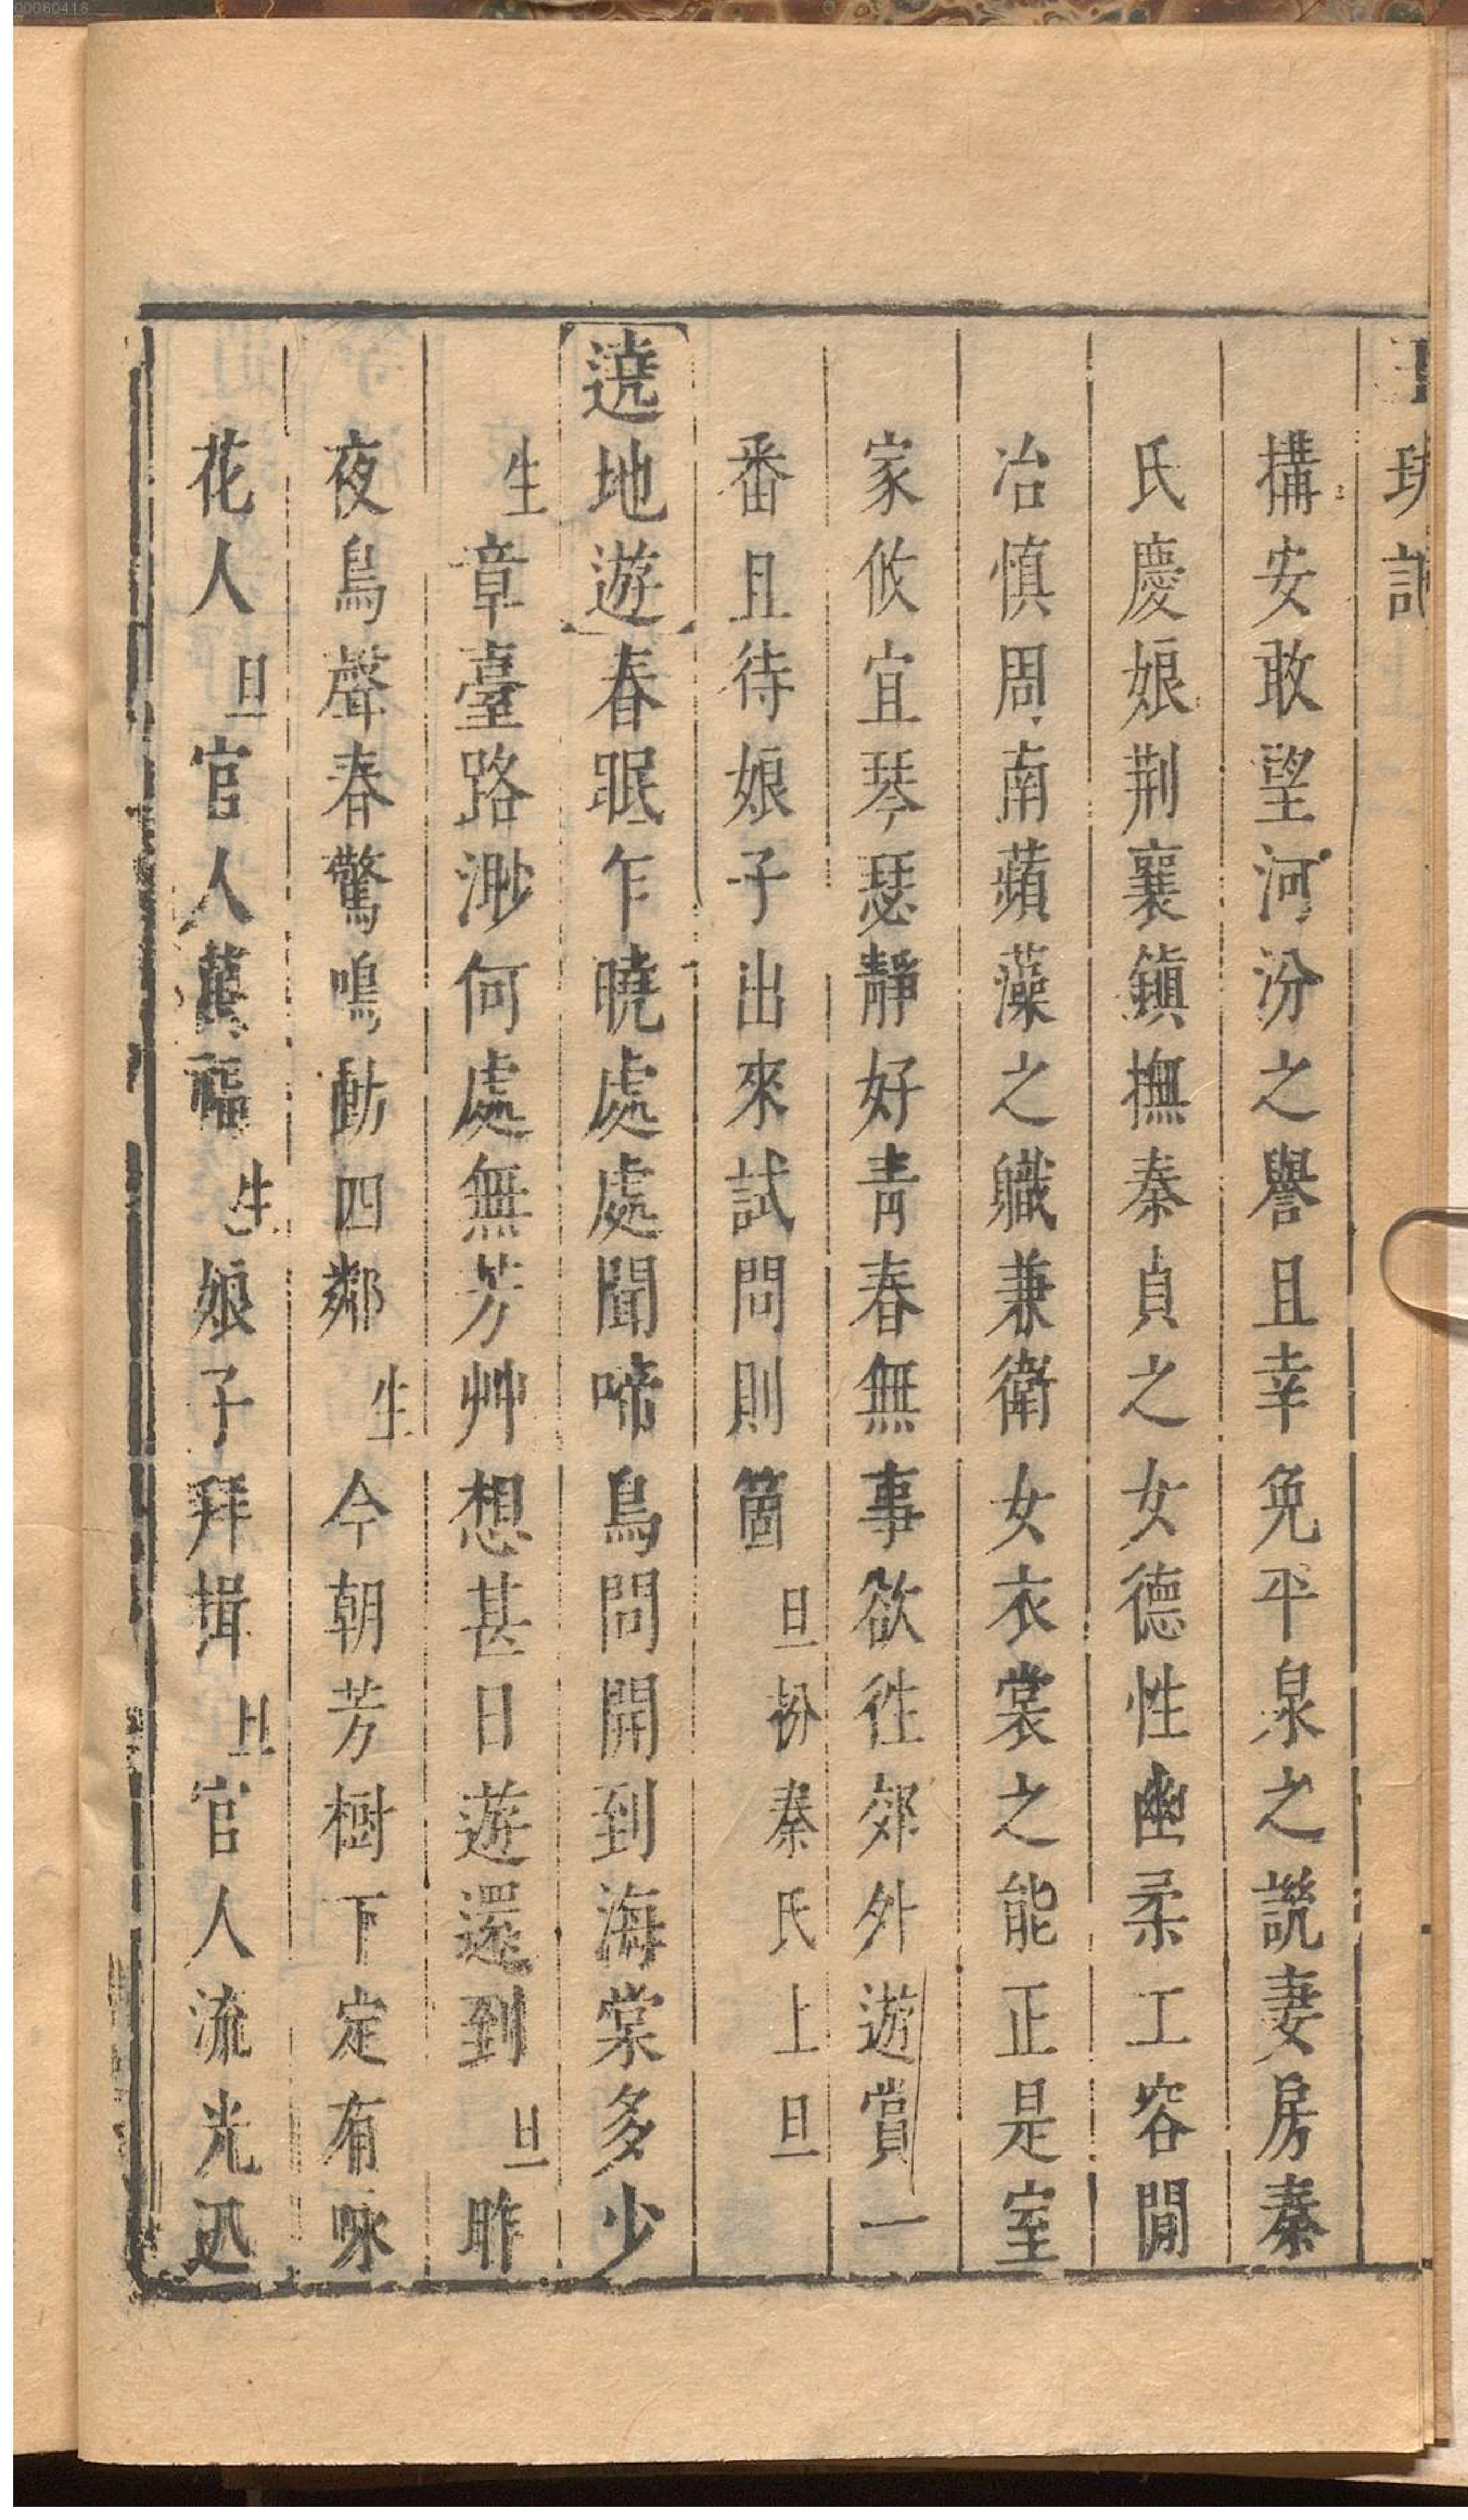 00080418
玦記
搆安敢望河汾之譽且幸免平泉之誚妻房秦
氏慶娘荆襄鎮撫秦貞之女德性幽柔工容閒
冶慎周南蘋藻之職兼衛女衣裳之能正是室
家攸宜琴瑟靜好青春無事欲徃郊外遊賞一
番且待娘子出來試問則箇旦扮秦氏上旦
遶地遊春眠乍曉處處聞啼鳥問開到海棠多少
生章臺路渺何處無芳艸想甚日遊還到旦昨
夜鳥聲春驚鳴動四鄰生今朝芳樹下定有咏
花人旦官人萬福生娘子拜揖旦官人流光迅